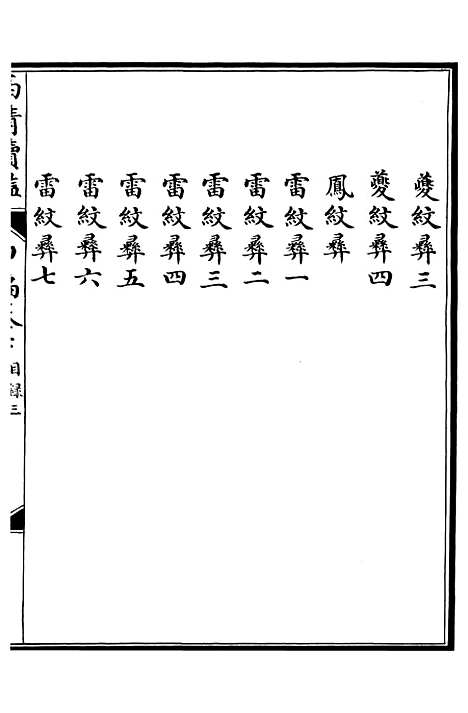 夔紋彝三
夔紋彝四
鳳紋彝
雷紋彝一
雷紋彝二
雷紋彝三
雷紋彝四
雷紋彝五
雷紋彝六
雷紋彝七
清續鑑
目錄三